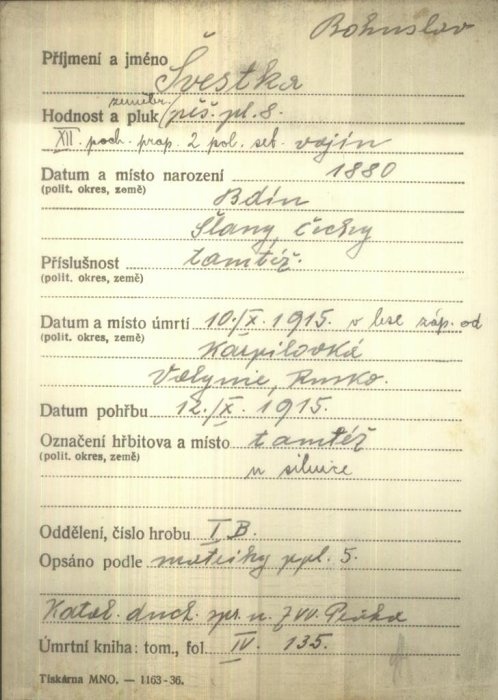 Bohuslav
Příjmení a jméno Švestka
zeměbr.
Hodnost a pluk pěš. pl. 8.
XII. poch. prap. 2 pol. set. vojín
Datum a místo narození 1880
(polit. okres, země) Bdín
Slaný, Čechy
Příslušnost tamtéž.
(polit. okres, země)
Datum a místo úmrtí 10./X. 1915. v lese záp. od
(polit. okres, země) Karpilovka
Volynie, Rusko.
Datum pohřbu 12./X. 1915.
Označení hřbitova a místo tamtéž
(polit. okres, země) u silnice
Oddělení, číslo hrobu I B.
Opsáno podle matriky ppl. 5.
Katol. duch. spr. n. z vv. Praha
Úmrtní kniha: tom., fol. IV. 135.
Tiskárna MNO. — 1163-36.